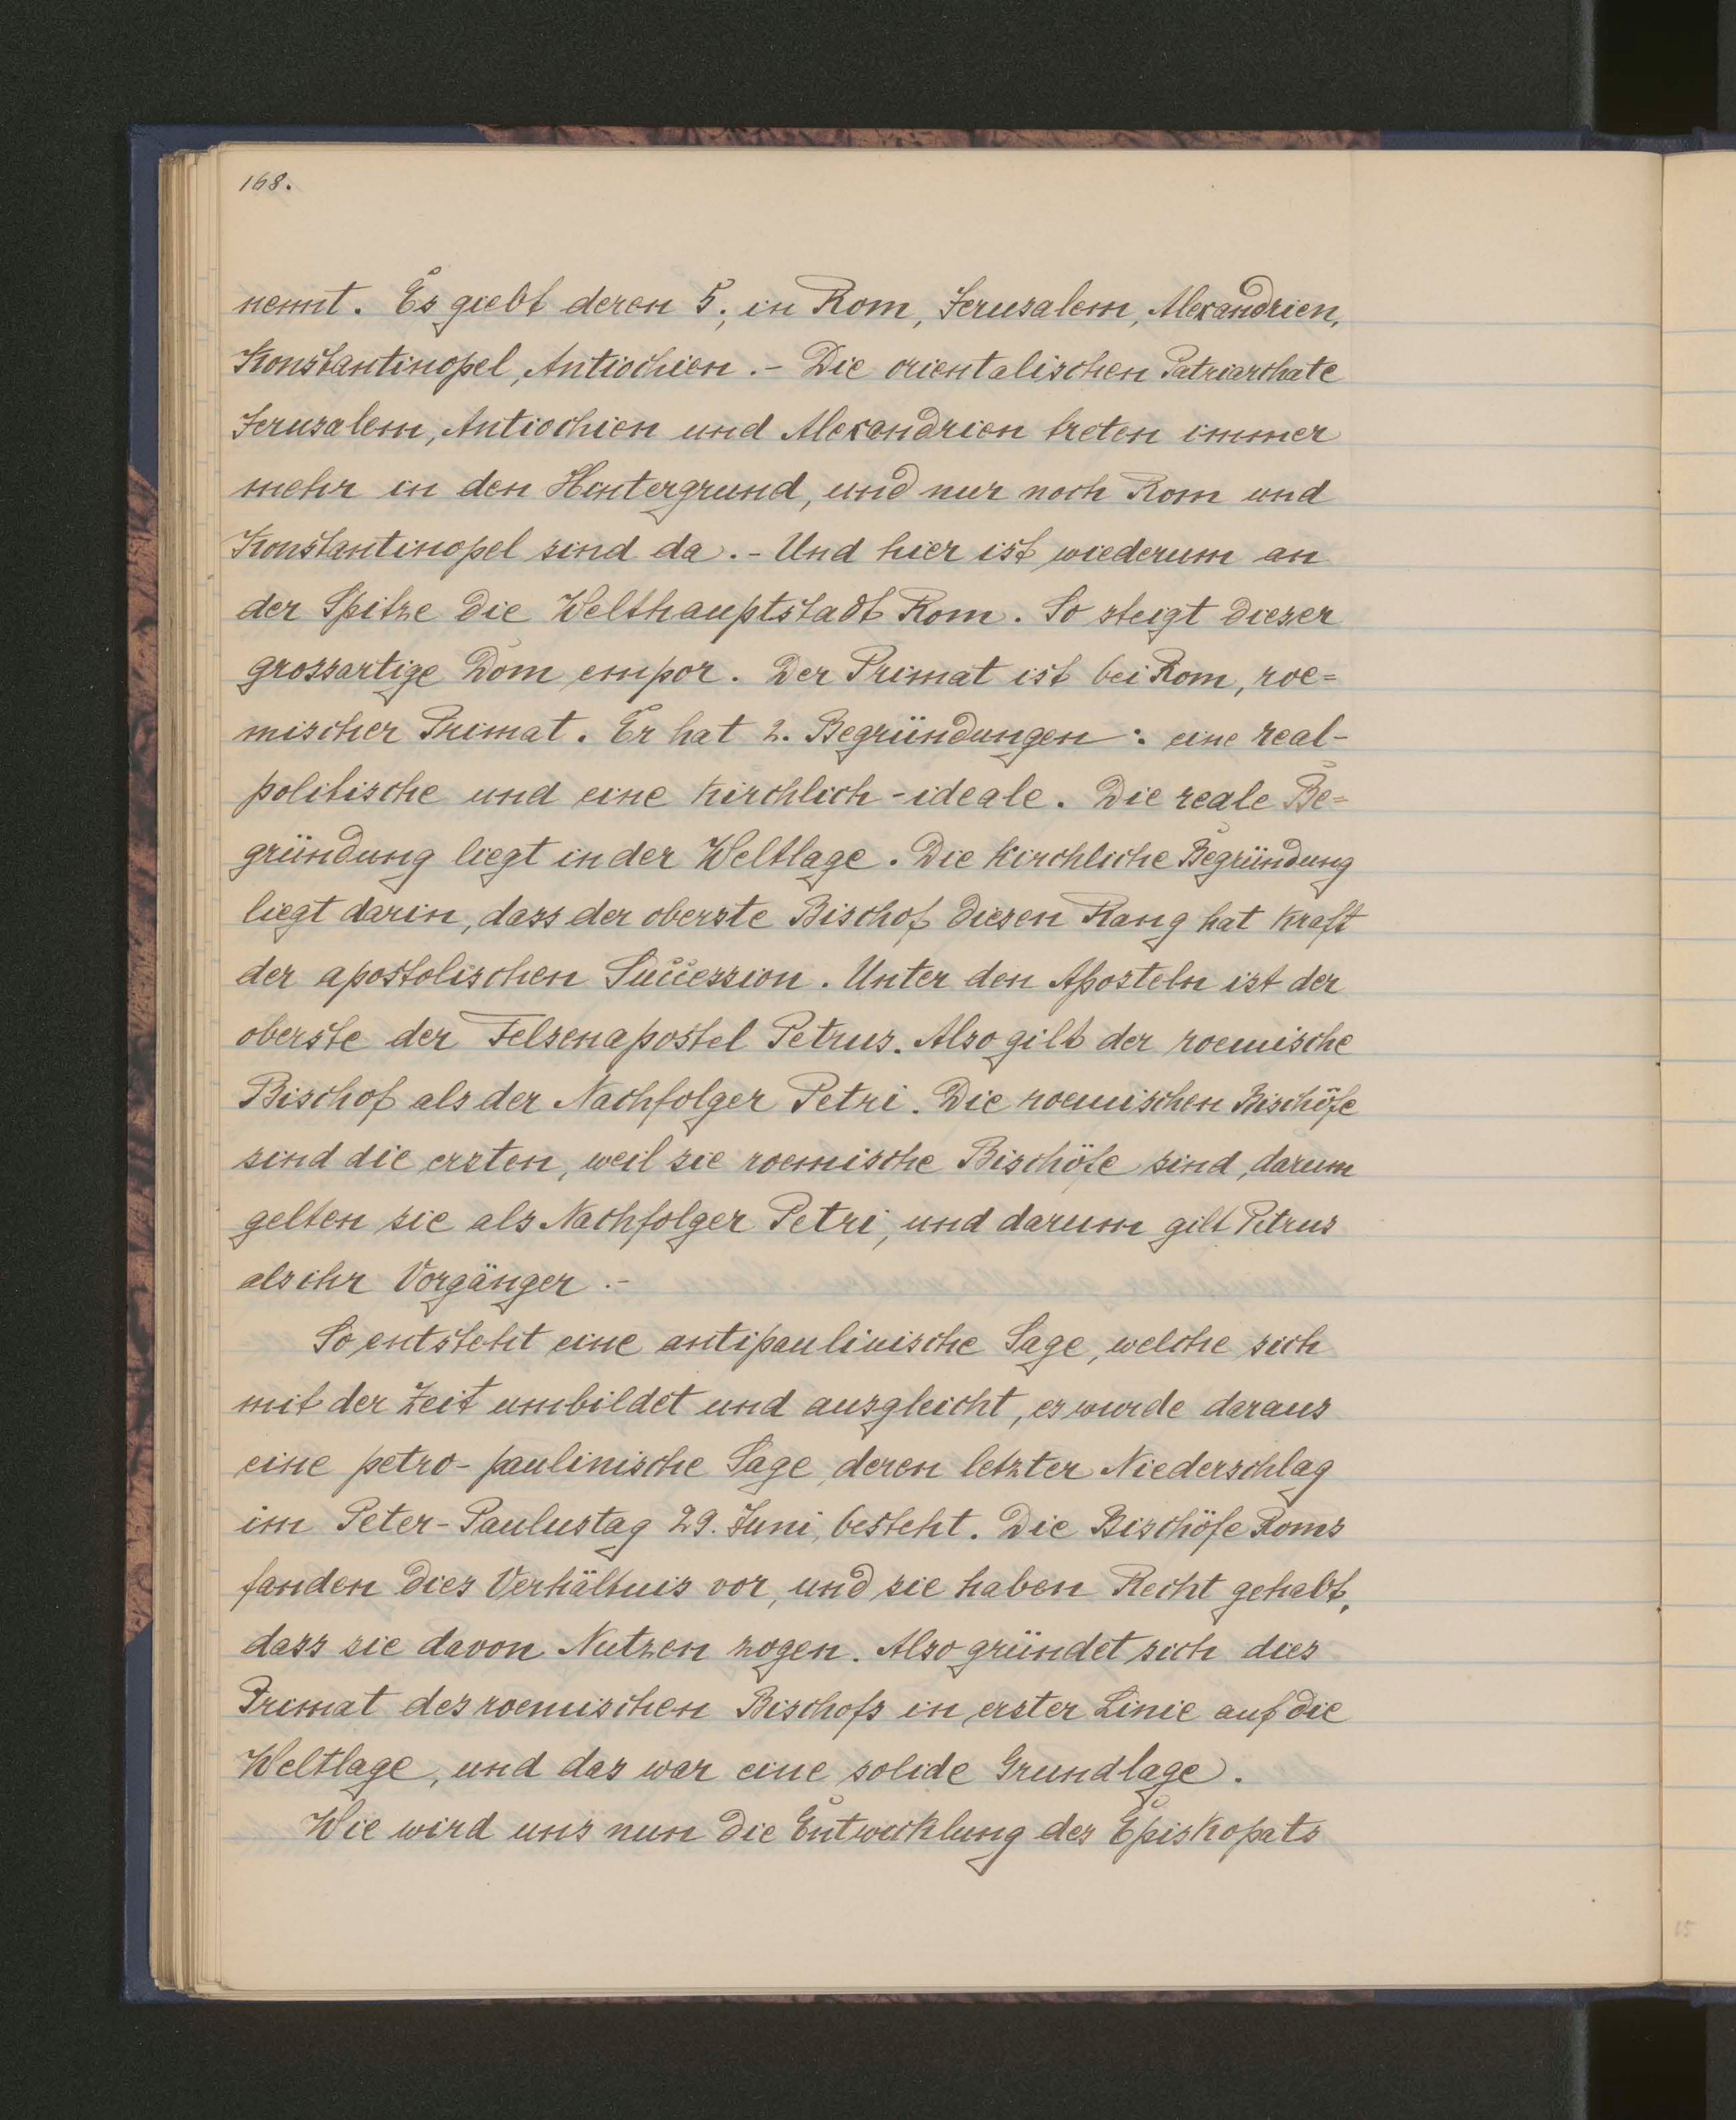 168.
nennt. Es giebt deren 5; in Rom, Jerusalem, Alexandrien,
Konstantinopel, Antiochien. - Die orientalischen Patriarchate
Jerusalem, Antiochien und Alexandrien treten immer
mehr in den Hintergrund, und nur noch Rom und
Konstantinopel sind da. - Und hier ist wiederum an
der Spitze die Welthauptstadt Rom. So steigt dieser
grossartige Dom empor. Der Primat ist bei Rom, roe=
mischer Primat. Er hat 2. Begründungen: eine real-
politische und eine kirchlich-ideale. Die reale Be=
gründung liegt in der Weltlage. Die kirchliche Begründung
liegt darin, dass der oberste Bischof diesen Rang hat kraft
der apostolischen Succession. Unter den Aposteln ist der
oberste der Felsenapostel Petrus. Also gilt der roemische
Bischof als der Nachfolger Petri. Die roemischen Bischöfe
sind die ersten, weil sie roemische Bischöfe sind, darum
gelten sie als Nachfolger Petri, und darum gilt Petrus
als ihr Vorgänger. -
So entsteht eine antipaulinische Sage, welche sich
mit der Zeit umbildet und ausgleicht, es wurde daraus
eine petro-paulinische Sage, deren letzter Niederschlag
im Peter-Paulustag 29. Juni, besteht. Die Bischöfe Roms
fanden dies Verhältnis vor, und sie haben Recht gehabt,
dass sie davon Nutzen zogen. Also gründet sich dies
Primat des roemischen Bischofs in erster Linie auf die
Weltlage, und das war eine solide Grundlage.
Wie wird uns nun die Entwicklung des Episkopats